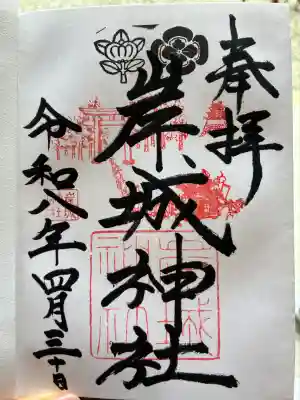 奉拝
岸城神社
令和八年四月三十日